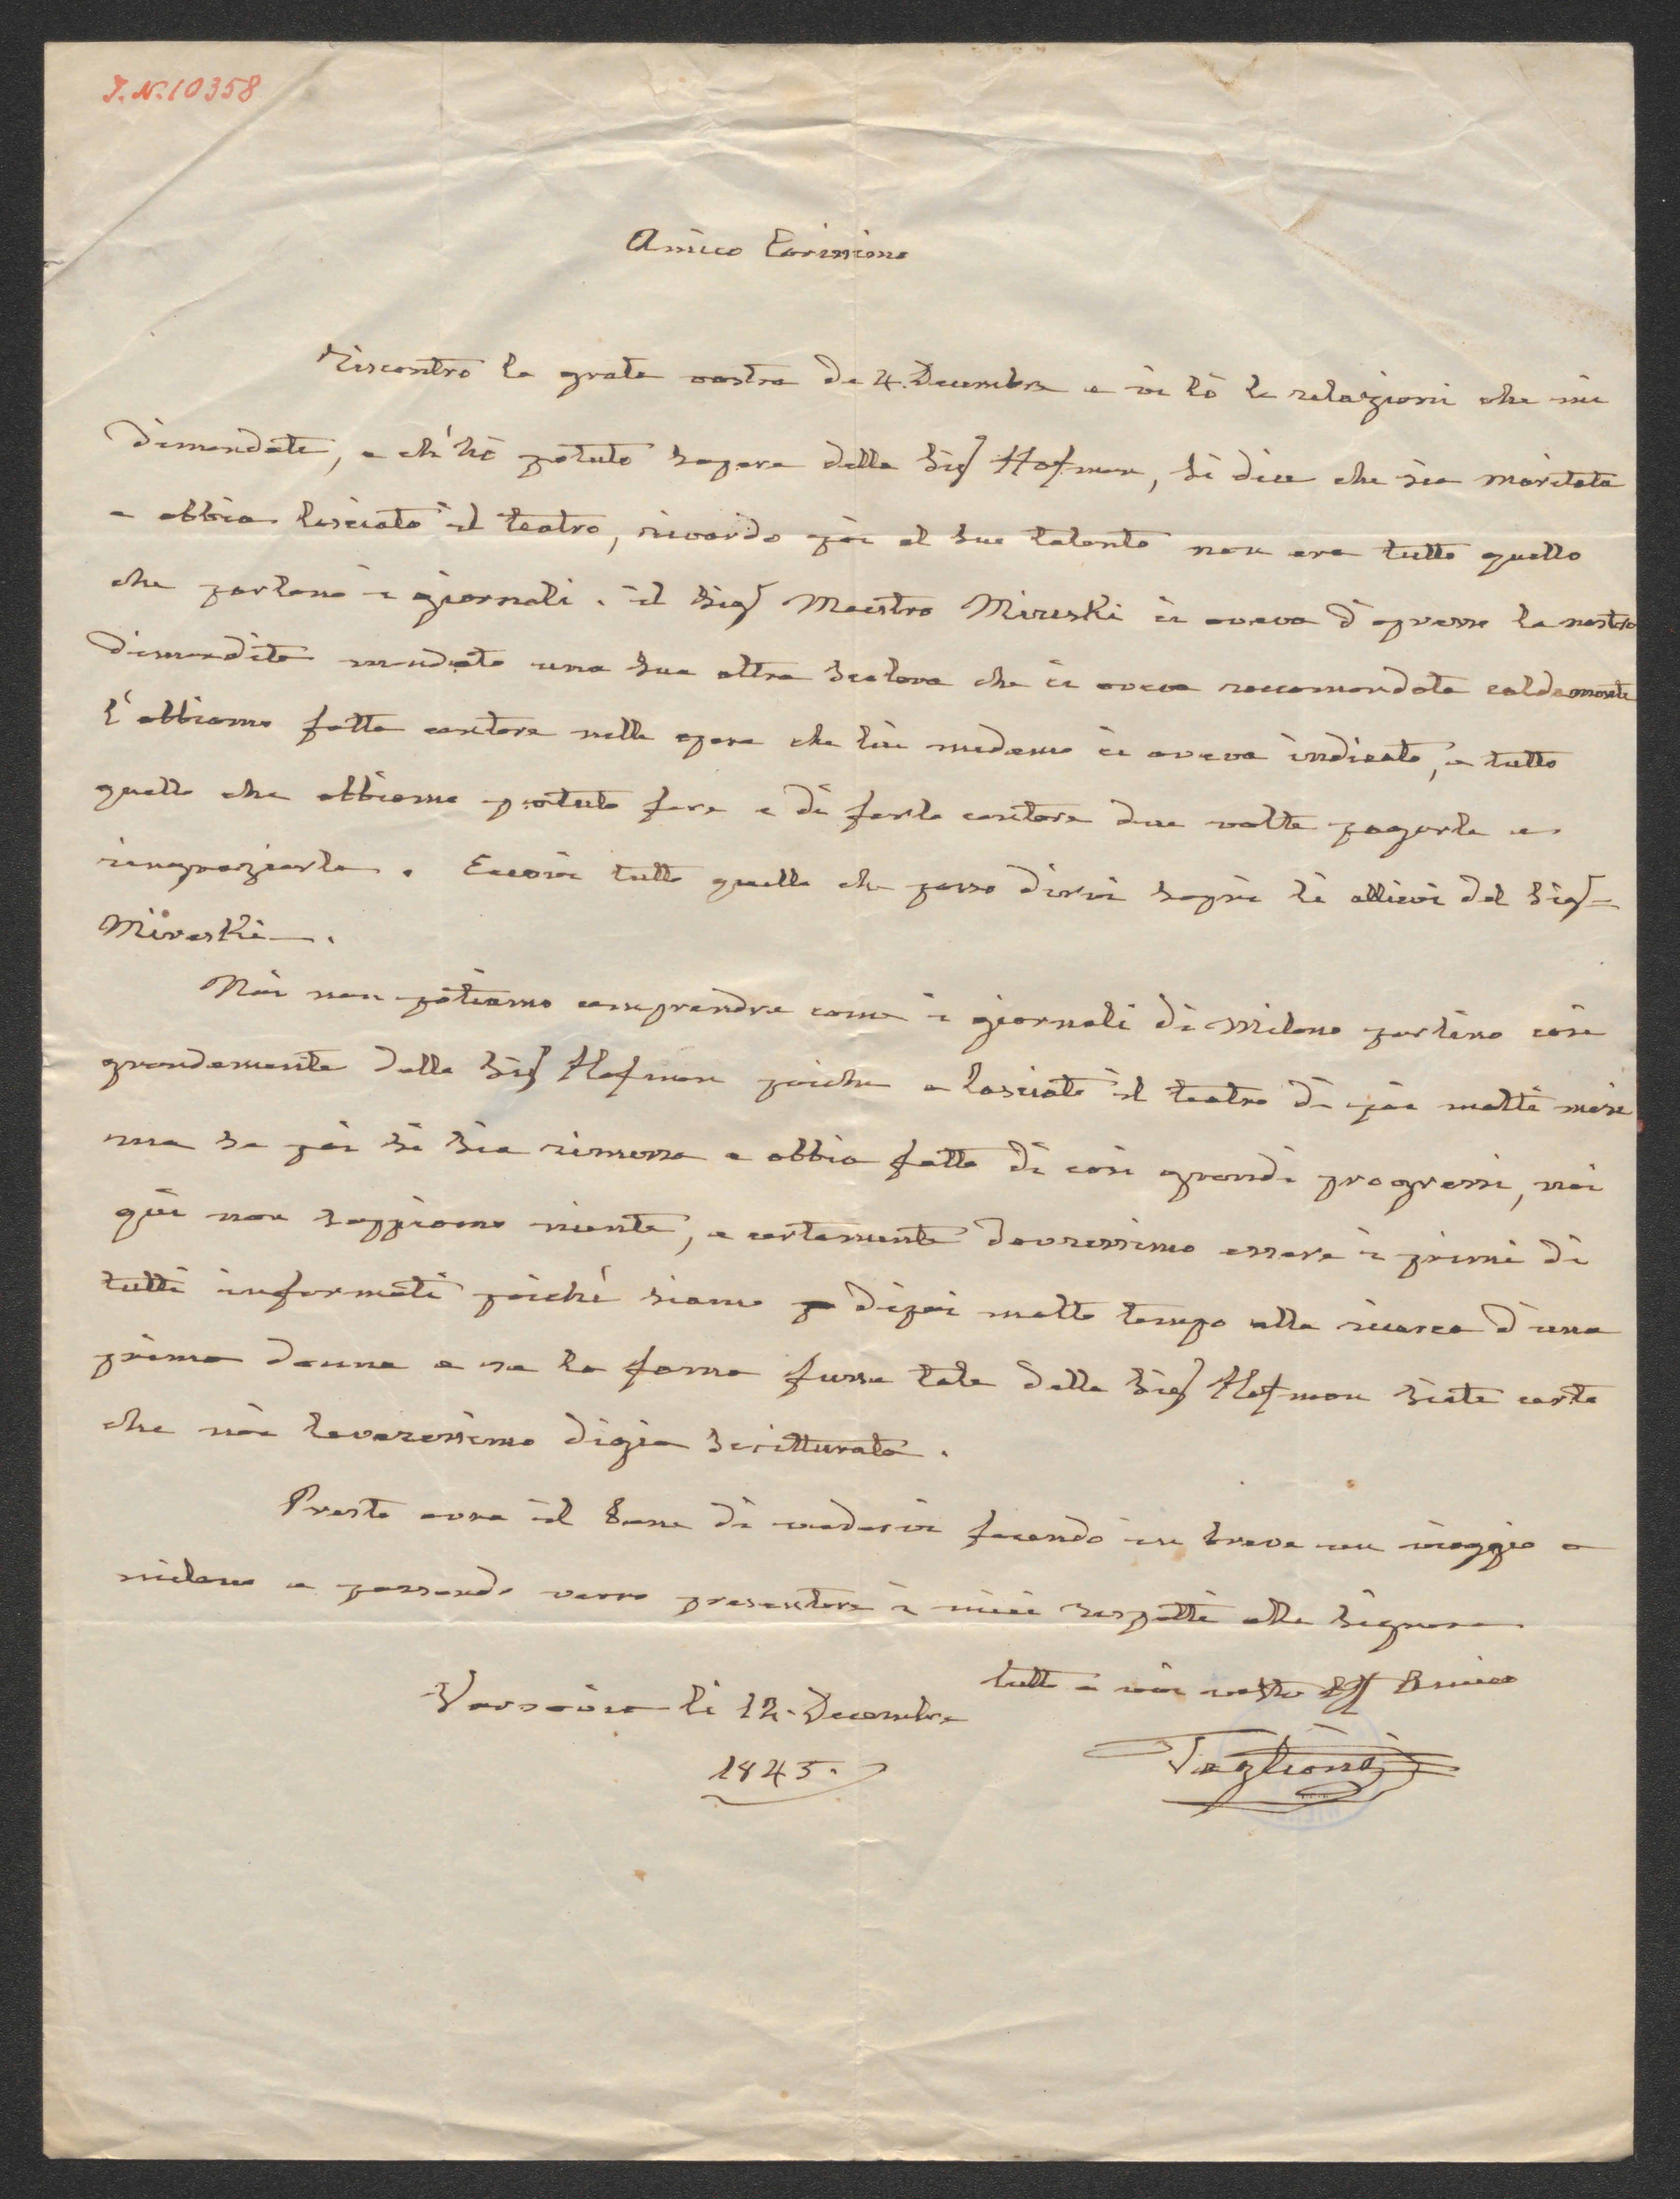 I.N.10358
Amico Carissimo
Riscontro la grata vostra de 4. Decembre e vi fò le relazioni che mi
dimandate, e ch'hò potuto sapere della Sig Hofman, si dice che sia maritata
e abbia lasciato il teatro, ricordo poi al suo talento non era tutto quello
che parlano i giornali. il Sig Maestro Mireski ci aveva d'apresse la nostra
dimandata mandato una sua altra scolara che ci aveva raccomandata caldamente
l'abbiamo fatta cantare nelle opere che lui medemo ci aveva indicato, e tutto
quello che abbiamo potuto fare e di farla cantare due volte pagarla e
ringraziarla. Eccovi tutto quello che posso dirvi sopra li allievi del Sig
Mireski.
Noi non potiamo comprendre come i giornali di Milano parlino così
grandemente della Sig Hofman poiche a lasciato il teatro di poi molti mesi
ma se poi si sia rimessa e abbia fatto di cosi grandi progressi, noi
qui non sappiamo niente, e certamente dovressimo essere i primi di
tutti informati poichè siamo dipoi molto tempo alla ricerca d'una
prima donna e se la fama fusse tale della Sig Hofman siate certo
che noi lavaressimo digia scritturata.
Presto avro il bene di vedervi facendo in breve un viaggio a
milano e passando verro presentare i miei rispetti alla Signora
tutto a voi vostro Aff Amico
Varsavia li 12. Decembre
1845.
Taglioni